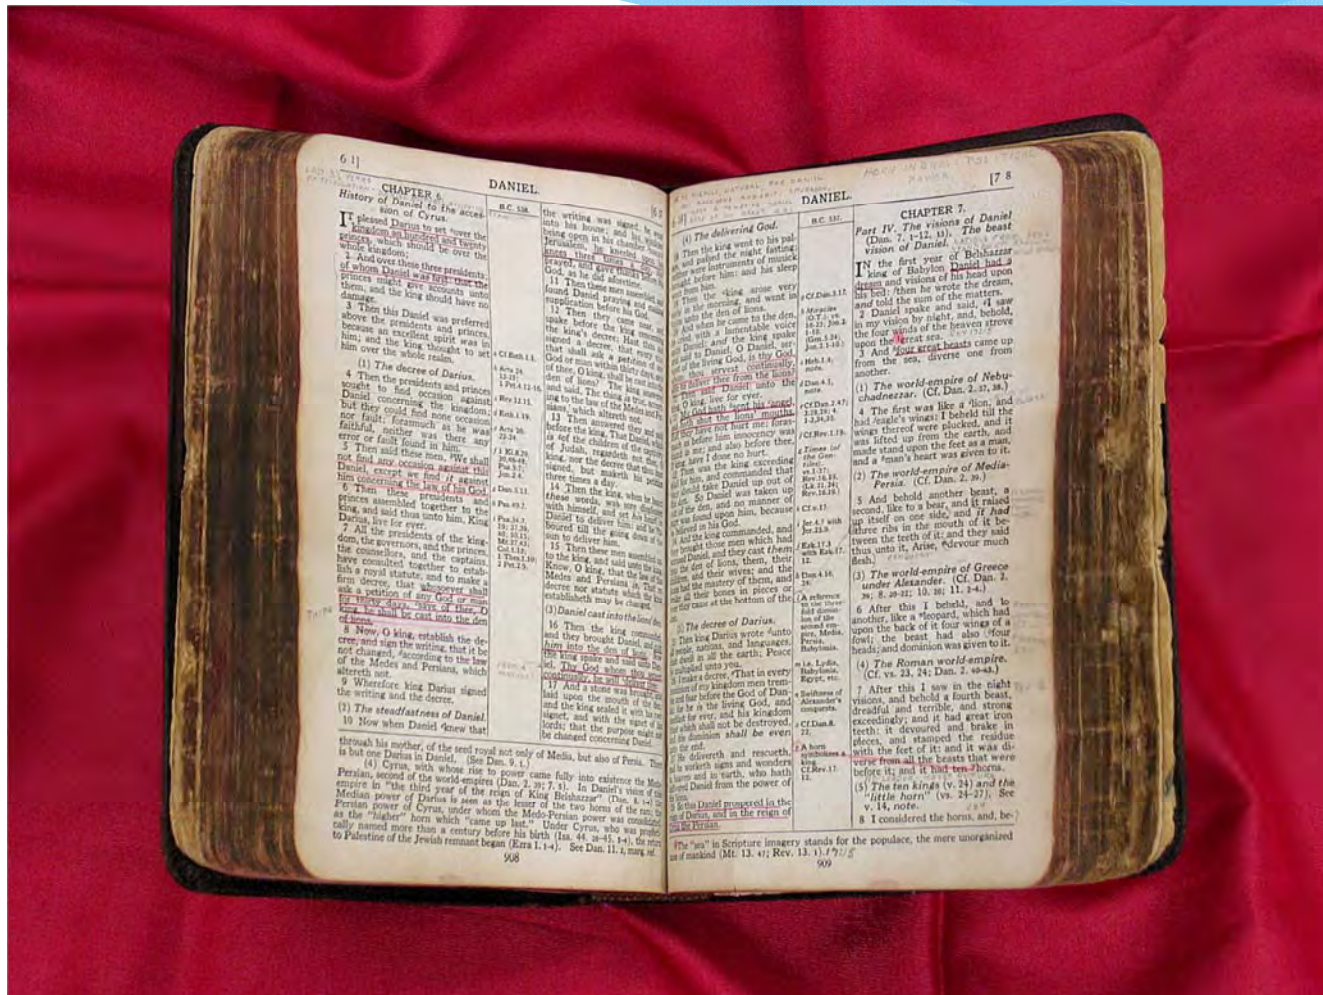 6 1]
DANIEL.
[6
CHAPTER 6.
History of Daniel to the acces-
sion of Cyrus.
IT pleased Darius to set over the
kingdom an hundred and twenty
princes, which should be over the
whole kingdom;
2 And over these three presidents;
of whom Daniel was first: that the
princes might give accounts unto
them, and the king should have no
damage.
3 Then this Daniel was preferred
above the presidents and princes,
because an excellent spirit was in
him; and the king thought to set
him over the whole realm.
(1) The decree of Darius.
4 Then the presidents and princes
sought to find occasion against
Daniel concerning the kingdom;
but they could find none occasion
nor fault; forasmuch as he was
faithful, neither was there any
error or fault found in him.
5 Then said these men, We shall
not find any occasion against this
Daniel, except we find it against
him concerning the law of his God.
6 Then these presidents and
princes assembled together to the
king, and said thus unto him, King
Darius, live for ever.
7 All the presidents of the king-
dom, the governors, and the princes,
the counsellors, and the captains,
have consulted together to estab-
lish a royal statute, and to make a
firm decree, that whosoever shall
ask a petition of any God or man
for thirty days, save of thee, O
king, he shall be cast into the den
of lions.
8 Now, O king, establish the de-
cree, and sign the writing, that it be
not changed, according to the law
of the Medes and Persians, which
altereth not.
9 Wherefore king Darius signed
the writing and the decree.
(2) The steadfastness of Daniel.
10 Now when Daniel knew that
B.C. 538.
a Cf Esth.1.1.
1 Pet.4.12-16.
the writing was signed, he went
into his house; and his windows
being open in his chamber toward
Jerusalem, he kneeled upon his
knees three times a day, and
prayed, and gave thanks before his
God, as he did aforetime.
11 Then these men assembled, and
found Daniel praying and making
supplication before his God.
12 Then they came near, and
spake before the king concerning
the king's decree; Hast thou not
signed a decree, that every man
that shall ask a petition of any
God or man within thirty days, save
of thee, O king, shall be cast into the
den of lions? The king answered
and said, The thing is true, accord-
ing to the law of the Medes and Per-
sians, which altereth not.
13 Then answered they and said
before the king, That Daniel, which
is of the children of the captivity
of Judah, regardeth not thee, O
king, nor the decree that thou hast
signed, but maketh his petition
three times a day.
14 Then the king, when he heard
these words, was sore displeased
with himself, and set his heart on
Daniel to deliver him: and he la-
boured till the going down of the
sun to deliver him.
15 Then these men assembled unto
the king, and said unto the king,
Know, O king, that the law of the
Medes and Persians is, That no
decree nor statute which the king
establisheth may be changed.
(3) Daniel cast into the lions' den.
16 Then the king commanded,
and they brought Daniel, and cast
him into the den of lions. Now
the king spake and said unto Dan-
iel, Thy God whom thou servest
continually, he will deliver thee.
17 And a stone was brought, and
laid upon the mouth of the den;
and the king sealed it with his own
signet, and with the signet of his
lords; that the purpose might not
be changed concerning Daniel.
through his mother, of the seed royal not only of Media, but also of Persia. There
is but one Darius in Daniel. (See Dan. 9. 1.)
(4) Cyrus, with whose rise to power came fully into existence the Medo-
Persian, second of the world-empires (Dan. 2. 39; 7. 5). In Daniel's vision of this
empire in "the third year of the reign of King Belshazzar" (Dan. 8. 1-4) the
Median power of Darius is seen as the lesser of the two horns of the ram; the
Persian power of Cyrus, under whom the Medo-Persian power was consolidated,
as the "higher" horn which "came up last." Under Cyrus, who was prophet-
ically named more than a century before his birth (Isa. 44. 28-45. 1-4), the return
to Palestine of the Jewish remnant began (Ezra 1. 1-4). See Dan. 11. 2, marg. ref.
908
DANIEL.
[7 8
(4) The delivering God.
18 Then the king went to his pal-
ace, and passed the night fasting:
neither were instruments of musick
brought before him: and his sleep
went from him.
19 Then the king arose very
early in the morning, and went in
haste unto the den of lions.
20 And when he came to the den,
he cried with a lamentable voice
unto Daniel: and the king spake
and said to Daniel, O Daniel, ser-
vant of the living God, is thy God,
whom thou servest continually,
able to deliver thee from the lions?
21 Then said Daniel unto the
king, O king, live for ever.
22 My God hath sent his angel,
and hath shut the lions' mouths,
that they have not hurt me: foras-
much as before him innocency was
found in me; and also before thee,
O king, have I done no hurt.
23 Then was the king exceeding
glad for him, and commanded that
they should take Daniel up out of
the den. So Daniel was taken up
out of the den, and no manner of
hurt was found upon him, because
he believed in his God.
24 And the king commanded, and
they brought those men which had
accused Daniel, and they cast them
into the den of lions, them, their
children, and their wives; and the
lions had the mastery of them, and
brake all their bones in pieces or
ever they came at the bottom of the
den.
(5) The decree of Darius.
25 Then king Darius wrote unto
all people, nations, and languages,
that dwell in all the earth; Peace
be multiplied unto you.
26 I make a decree, That in every
dominion of my kingdom men trem-
ble and fear before the God of Dan-
iel: for he is the living God, and
stedfast for ever, and his kingdom
that which shall not be destroyed,
and his dominion shall be even
unto the end.
27 He delivereth and rescueth,
and he worketh signs and wonders
in heaven and in earth, who hath
delivered Daniel from the power of
the lions.
28 So this Daniel prospered in the
reign of Darius, and in the reign of
Cyrus the Persian.
B.C. 537.
a Cf.Dan.3.12.
b Miracles
(O.T.): vs.
16-23; Jon.2.
1-10.
(Gen.5.24;
Jon.2.1-10.)
c Heb.1.4,
note.
d Dan.4.1,
note.
f Cf.Rev.1.19.
g Times (of
the Gen-
tiles).
i Cf.v.17.
j Jer.4.7 with
Jer.25.9.
k Ezk.17.3
with Ezk.17.
12.
l A reference
to the three-
fold domin-
ion of the
second em-
pire, Media,
Persia,
Babylonia.
m i.e. Lydia,
Babylonia,
Egypt, etc.
n Swiftness of
Alexander's
conquests.
o Cf.Dan.8.
22.
p A horn
symbolizes a
king.
Cf.Rev.17.
12.
CHAPTER 7.
Part IV. The visions of Daniel
(Dan. 7. 1-12, 13). The beast
vision of Daniel.
IN the first year of Belshazzar
king of Babylon Daniel had a
dream and visions of his head upon
his bed: then he wrote the dream,
and told the sum of the matters.
2 Daniel spake and said, I saw
in my vision by night, and, behold,
the four winds of the heaven strove
upon the great sea.
3 And four great beasts came up
from the sea, diverse one from
another.
(1) The world-empire of Nebu-
chadnezzar. (Cf. Dan. 2. 37, 38.)
4 The first was like a lion, and
had eagle's wings: I beheld till the
wings thereof were plucked, and it
was lifted up from the earth, and
made stand upon the feet as a man,
and a man's heart was given to it.
(2) The world-empire of Media-
Persia. (Cf. Dan. 2. 39.)
5 And behold another beast, a
second, like to a bear, and it raised
up itself on one side, and it had
three ribs in the mouth of it be-
tween the teeth of it: and they said
thus unto it, Arise, devour much
flesh.
(3) The world-empire of Greece
under Alexander. (Cf. Dan. 2.
39; 8. 20-22; 10. 20; 11. 2-4.)
6 After this I beheld, and lo
another, like a leopard, which had
upon the back of it four wings of a
fowl; the beast had also four
heads; and dominion was given to it.
(4) The Roman world-empire.
(Cf. vs. 23, 24; Dan. 2. 40-43.)
7 After this I saw in the night
visions, and behold a fourth beast,
dreadful and terrible, and strong
exceedingly; and it had great iron
teeth: it devoured and brake in
pieces, and stamped the residue
with the feet of it: and it was di-
verse from all the beasts that were
before it; and it had ten horns.
(5) The ten kings (v. 24) and the
"little horn" (vs. 24-27). See
v. 14, note.
8 I considered the horns, and, be-
The "sea" in Scripture imagery stands for the populace, the mere unorganized
mass of mankind (Mt. 13. 47; Rev. 13. 1).
909